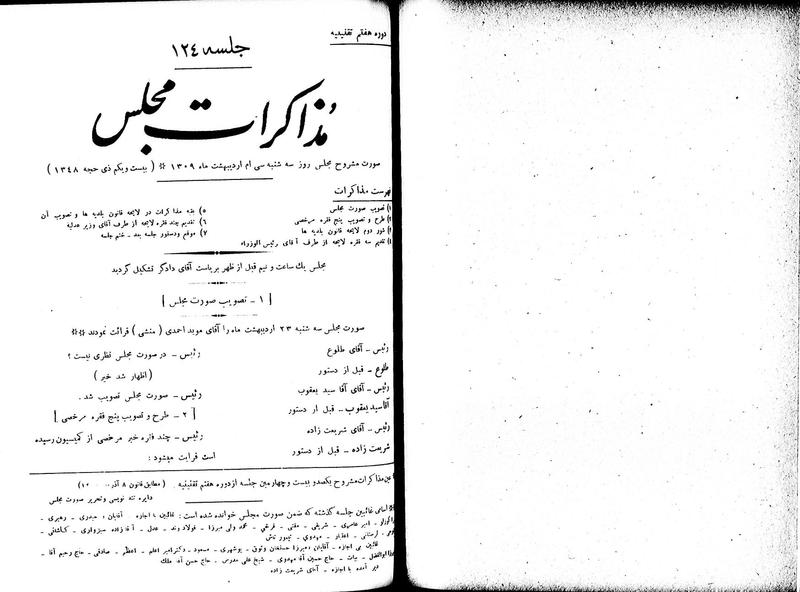 دوره هفتم تقنینیه
جلسه ١٢٤
مذاکرات مجلس
صورت مشروح مجلس روز سه شنبه سی ام اردیبهشت ماه ١٣٠٩ ※ ( بیست ویکم ذی حجه ١٣٤٨ )
فهرست مذاکرات
١) تصویب صورت مجلس
طرح و تصویب پنج فقره مرخصی
شور دوم لایحه قانون بلدیه ها
تقدیم سه فقره لایحه از طرف آقای رئیس الوزراء
٥) بقیه مذاکرات در لایحه قانون بلدیه ها و تصویب آن
٦) تقدیم چند فقره لایحه از طرف آقای وزیر عدلیه
٧) موقع ودستور جلسه بعد - ختم جلسه
مجلس یك ساعت و نیم قبل از ظهر بریاست آقای دادگر تشکیل گردید
[ ١ - تصویب صورت مجلس ]
صورت مجلس سه شنبه ٢٣ اردیبهشت ماه را آقای موید احمدی ( منشی ) قرائت نمودند ※※
رئیس - آقای طلوع
طلوع - قبل از دستور
رئیس - آقای آقا سید یعقوب
آقاسیدیعقوب - قبل از دستور
رئیس - آقای شریعت زاده
شریعت زاده - قبل از دستور
رئیس - در صورت مجلس نظری نیست ؟
( اظهار شد خیر )
رئیس - صورت مجلس تصویب شد .
[ ٢ - طرح و تصویب پنج فقره مرخصی ]
رئیس - چند فقره خبر مرخصی از کمیسیون رسیده
است قرائت میشود :
عین مذاکرات مشروح یکصدو بیست وچهارمین جلسه ازدوره هفتم تقنینیه . ( مطابق قانون ٨ آذر
دایره تند نویسی وتحریر صورت مجلس
اسامی غائبین جلسه گذشته که ضمن صورت مجلس خوانده شده است : غائبین با اجازه آقایان : حیدری - رهبری -
امیر عامری - شریفی - مفتی - فرخی - محمد ولی میرزا - فولادوند - عدل - آقا زاده سبزواری - کاشانی -
لرستانی - اعتبار - مهدوی - تیمور تاش
غائبین بی اجازه - آقایان : میرزا حسنخان وثوق - بوشهری - مسعود - دکترامیر اعلم - اعظم - صادقی - حاج رحیم آقا -
بیات - حاج حسین آقا مهدوی - شیخ علی مدرس - حاج حسن آقا ملك
دیر آمده با اجازه - آقای شریعت زاده